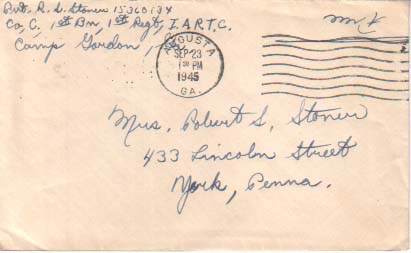 Pvt. R. S. Stoner 15360134
Co, C, 1st Bn, 1st Regt, I.A.R.T.C.
Camp Gordon,
Free
AUGUSTA
SEP 23
1 30 PM
1945
GA.
Mrs. Robert S. Stoner
433 Lincoln Street
York, Penna.